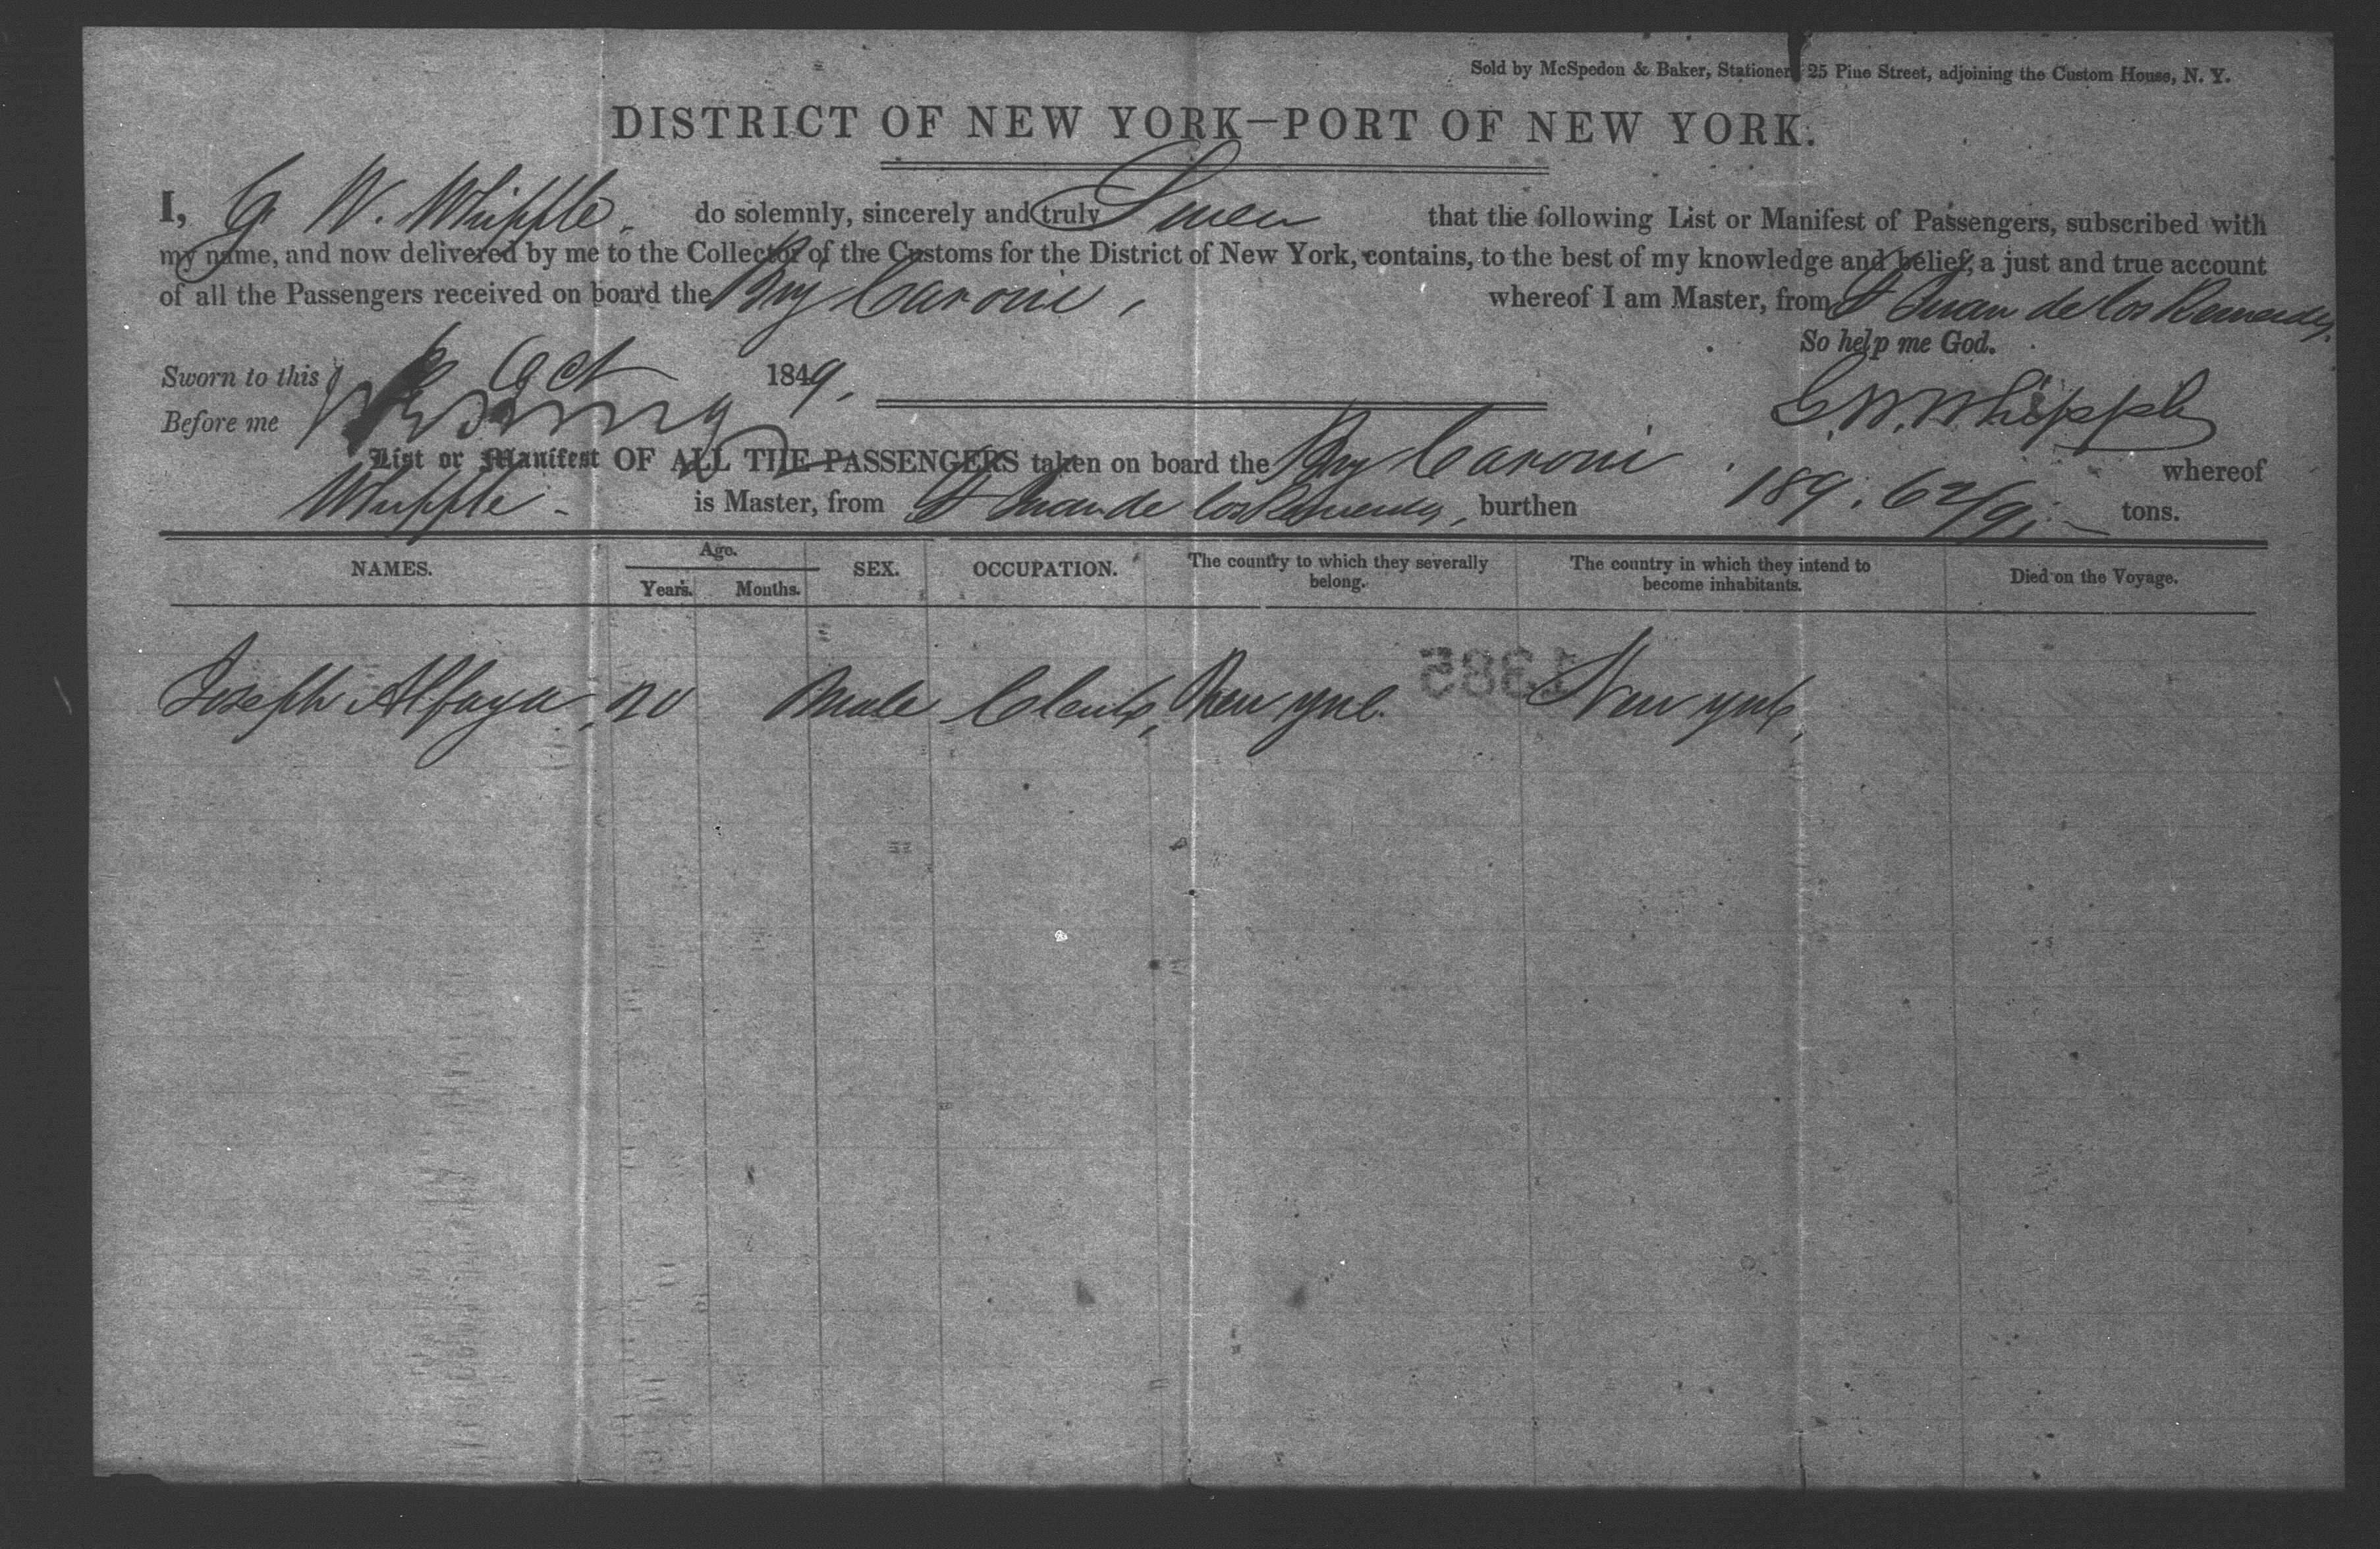 Sold by McSpedon & Baker, Stationers, 25 Pine Street, adjoining the Custom House, N. Y.
DISTRICT OF NEW YORK—PORT OF NEW YORK.
I, G. W. Whipple, do solemnly, sincerely and truly Swear that the following List or Manifest of Passengers, subscribed with
my name, and now delivered by me to the Collector of the Customs for the District of New York, contains, to the best of my knowledge and belief, a just and true account
of all the Passengers received on board the Brig Caroni, whereof I am Master, from St Juan de los Remedios.
So help me God.
Sworn to this Oct 1849.
Before me
G. W. Whipple
List or Manifest OF ALL THE PASSENGERS taken on board the Brig Caroni whereof
Whipple is Master, from St Juan de los Remedios, burthen 189. 62/95 tons.
NAMES. Age. Years. Months. SEX. OCCUPATION. The country to which they severally belong. The country in which they intend to become inhabitants. Died on the Voyage.
1385
Joseph Alfaya, 20 Male Clerk, New York. New York,